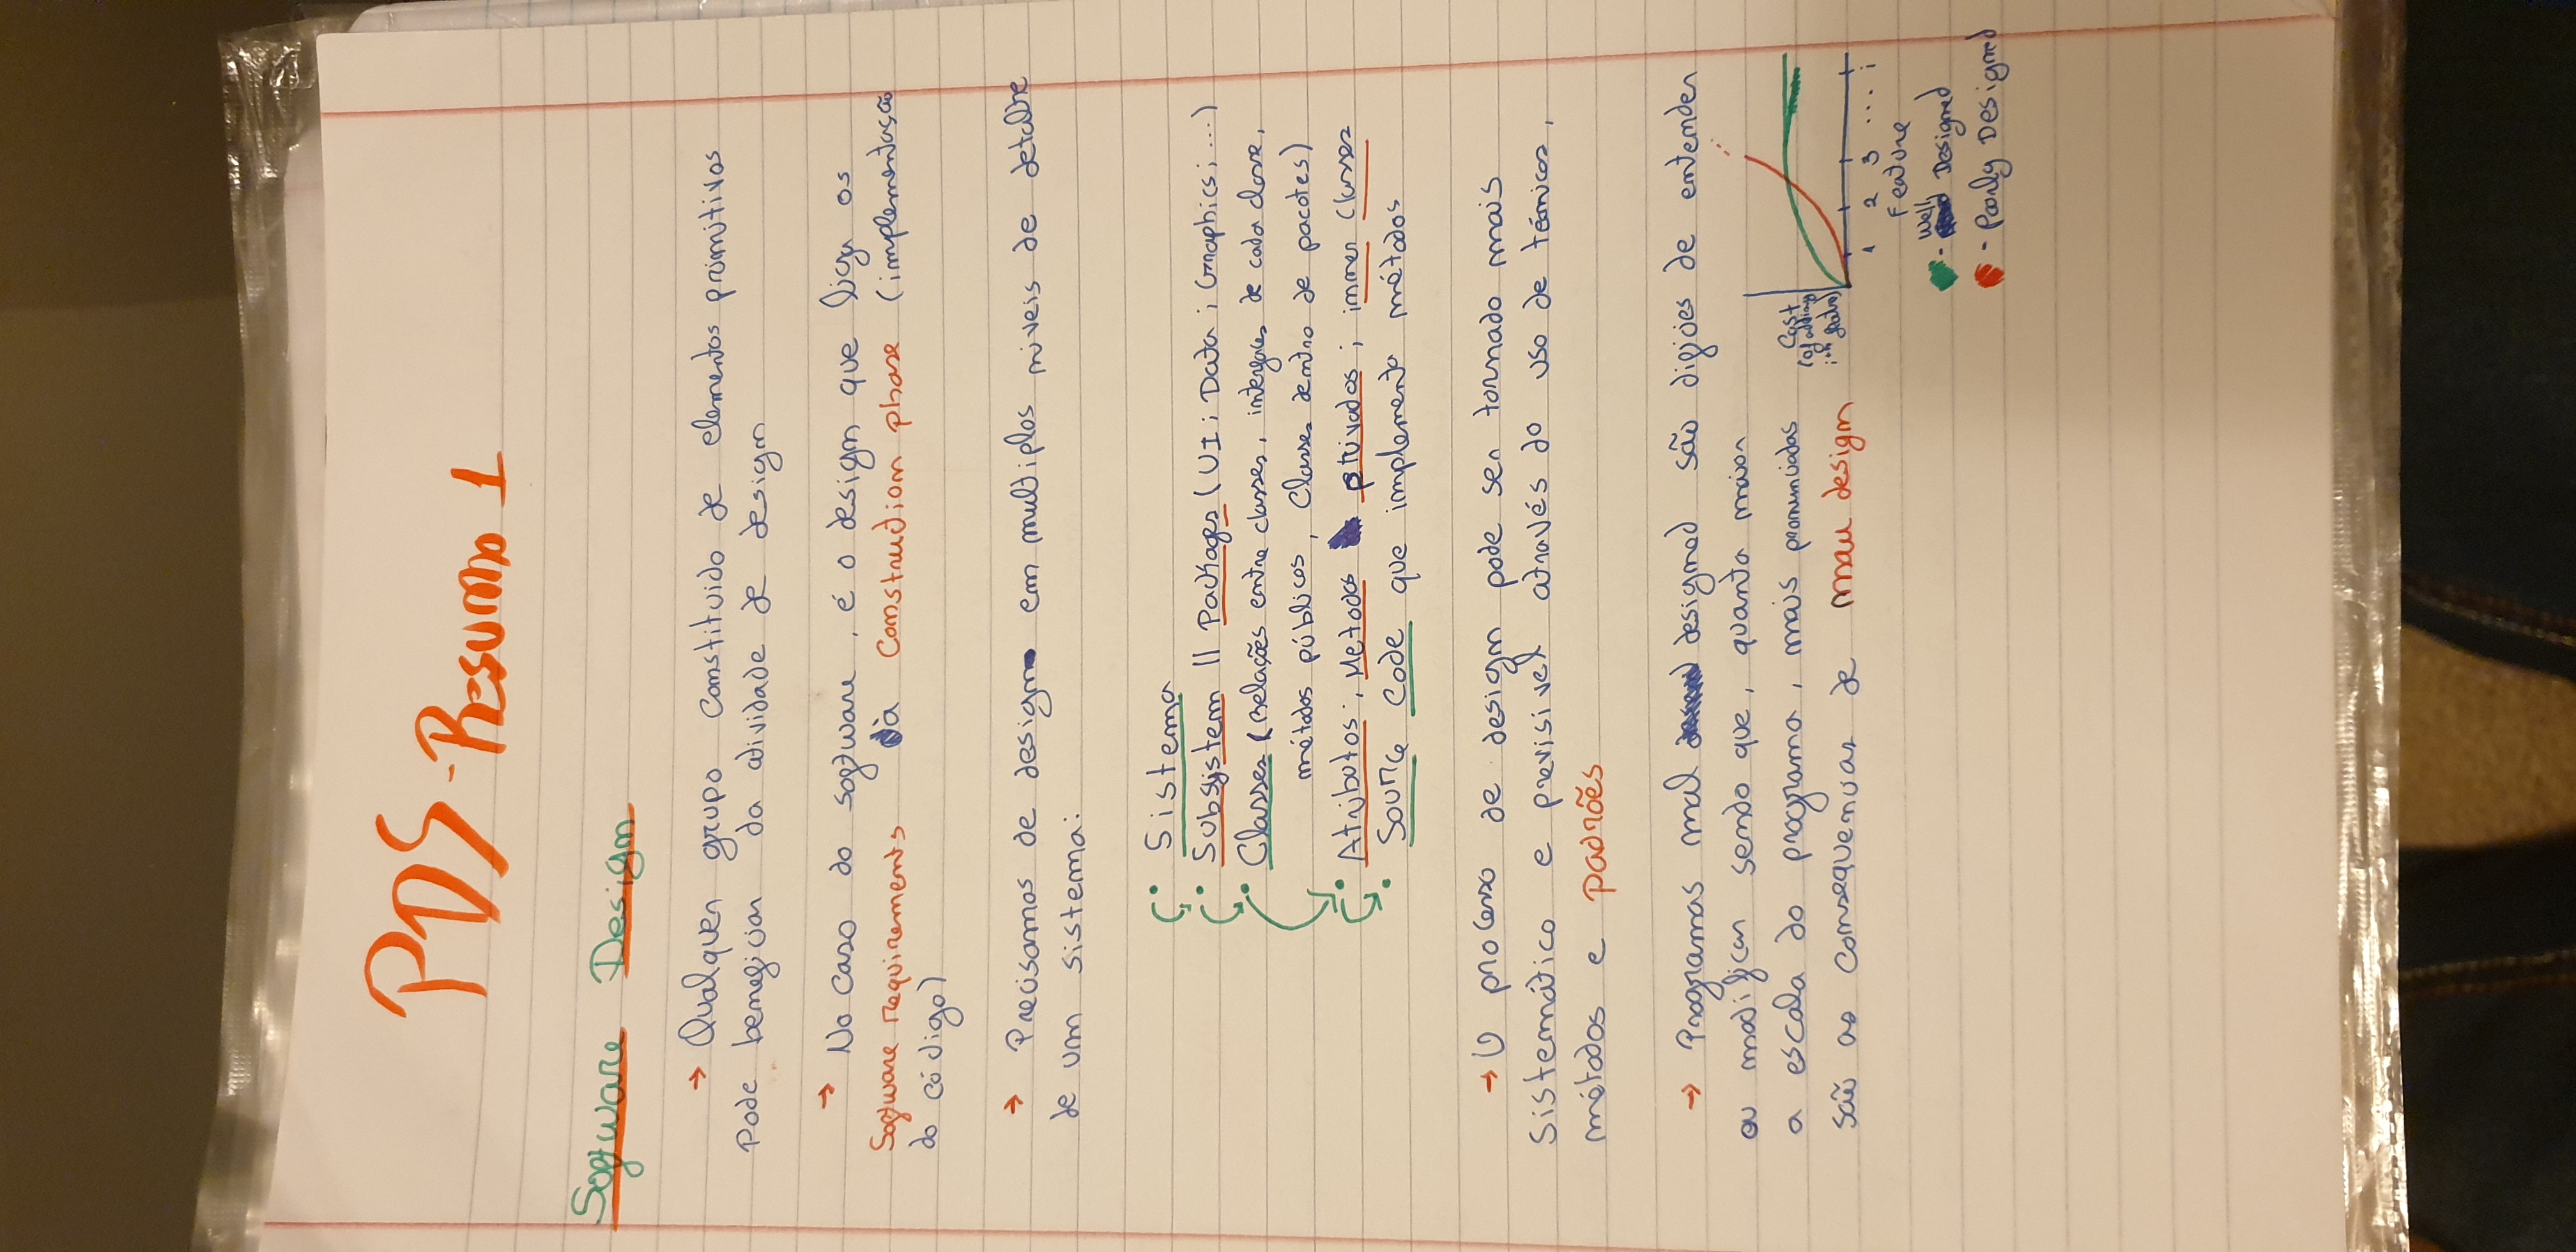 PDS - Resumo 1
Software Design
→ Qualquer grupo constituido de elementos primitivos
Pode beneficiar da atividade de design
→ No caso do software, é o design que liga os
Software requirements à Construction phase (implementação
do código)
→ Precisamos de design em multiplos niveis de detalhe
de um sistema:
• Sistema
• Subsystem || Packages (UI; Data; Graphics; ...)
• Classes (Relações entre classes, interfaces de cada classe,
métodos públicos, Classes dentro de pacotes)
• Atributos; Metodos privados; inner Classes
• Source Code que implementa métodos
→ O processo de design pode ser tornado mais
sistemático e previsivel através do uso de técnicas,
métodos e padrões
→ Programas mal designed são difíceis de entender
ou modificar sendo que, quanto maior
a escala do programa, mais pronunciadas
são as consequencias de mau design
Cost
(of adding
ith feature)
1 2 3 ... i
Feature
- Well Designed
- Poorly Designed